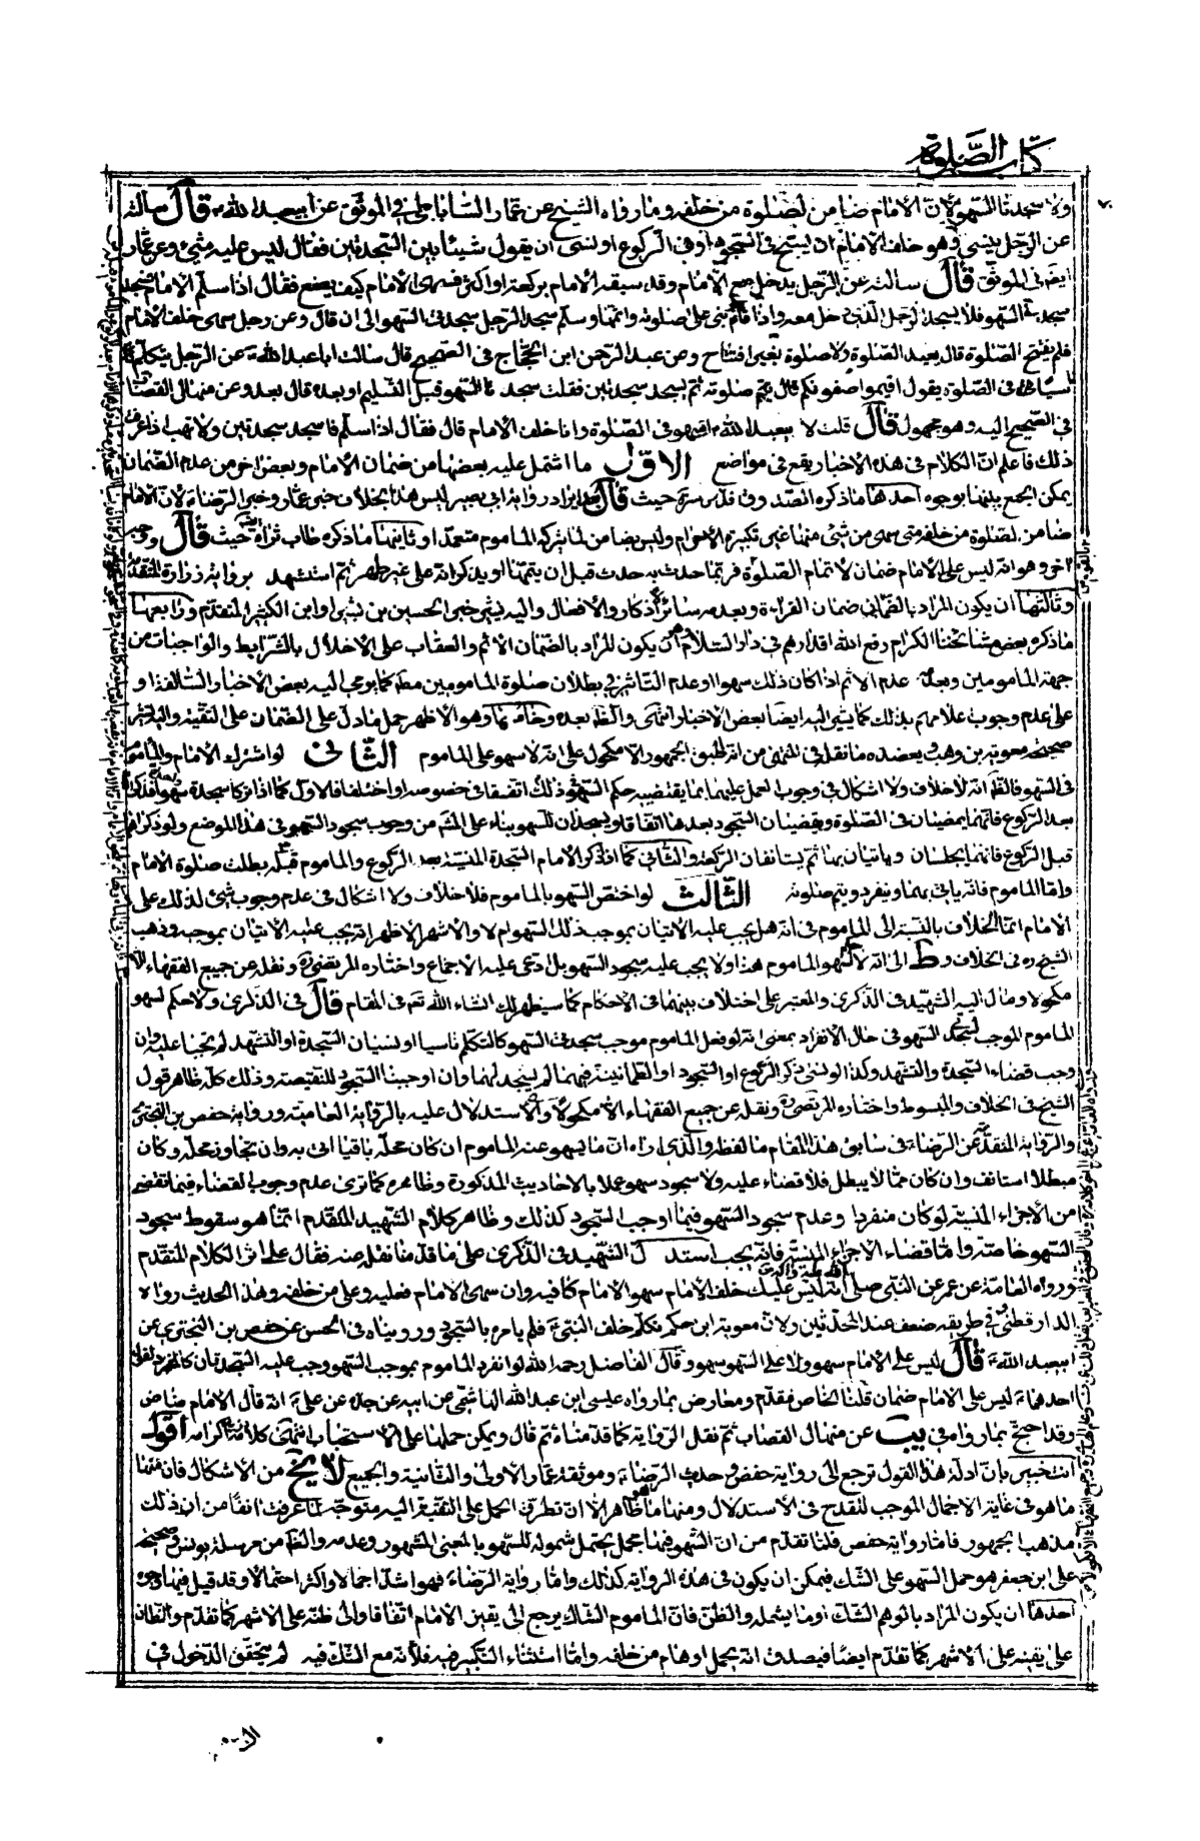 كتاب الصلوة
ولا سجدتا السهو لان الامام ضامن لصلوة من خلفه وما رواه الشيخ عن عمار الساباطي في الموثق عن ابيعبد الله ع قال سالته
عن الرجل ينسى وهو خلف الامام ان يسبح في السجود او في الركوع او نسى ان يقول شيئا بين السجدتين فقال ليس عليه شيء وعن عمار
ايضا في الموثق قال سالته عن الرجل يدخل مع الامام وقد سبقه الامام بركعة او اكثر فسهى الامام كيف يصنع فقال اذا سلم الامام فسجد
سجدتي السهو فلا يسجد الرجل الذي دخل معه واذا قام وبنى على صلوته واتمها وسلم سجد الرجل سجدتي السهو الى ان قال وعن رجل سهى خلف الامام
فلم يفتتح الصلوة قال يعيد الصلوة ولا صلوة بغير افتتاح وعن عبد الرحمن ابن الحجاج في الصحيح قال سالت ابا عبد الله ع عن الرجل يتكلم
ناسيا في الصلوة يقول اقيموا صفوفكم قال يتم صلوته ثم يسجد سجدتين فقلت سجدتا السهو قبل التسليم او بعده قال بعد وعن منهال القصاب
في الصحيح اليه وهو مجهول قال قلت لابيعبد الله ع اسهو في الصلوة وانا خلف الامام قال فقال اذا سلم فاسجد سجدتين ولا تهب اذا عرفت
ذلك فاعلم ان الكلام في هذه الاخبار يقع في مواضع الاول ما اشتمل عليه بعضها من ضمان الامام وبعض اخر من عدم الضمان
يمكن الجمع بينهما بوجوه احدها ما ذكره الصدوق قدس سره حيث قال بعد ايراد رواية ابي بصير ليس هذا بخلاف خبر عمار وخبر الرضا ع لان الامام
ضامن لصلوة من خلفه متى سهى عن شيء منها غير تكبيرة الاحرام وليس بضامن لما يتركه الماموم متعمدا وثانيها ما ذكره طاب ثراه ايضا حيث قال ووجه
اخر وهو انه ليس على الامام ضمان لاتمام الصلوة فربما حدث به حدث قبل ان يتمها او يذكر انه على غير طهر ثم استشهد برواية زرارة المتقدمة
وثالثها ان يكون المراد بالضمان ضمان القراءة وبعدمه سائر الاذكار والافعال واليه يشير خبر الحسين بن بشير او ابن الكثير المتقدم ورابعها
ما ذكره بعض مشائخنا الكرام رفع الله اقدارهم في دار السلام من ان يكون المراد بالضمان الاثم والعقاب على الاخلال بالشرايط والواجبات من
جهة المامومين وبعدمه عدم الاثم اذا كان ذلك سهوا او عدم التاثير في بطلان صلوة المامومين مطلقا كما يومي اليه بعض الاخبار السالفة او
على عدم وجوب اعلامهم بذلك كما يشير اليه ايضا بعض الاخبار انتهى والظاهر بعده وخامسها وهو الاظهر حمل ما دل على الضمان على التقية واليه يشير
صحيحة معوية بن وهب ويعضده ما نقل في المنتهى من انه اطبق الجمهور الا مكحول على انه لا سهو على الماموم الثاني لو اشترك الامام والماموم
في السهو فالظاهر انه لا خلاف ولا اشكال في وجوب العمل عليهما بما يقتضيه حكم السهو في ذلك اتفقا في خصوصه او اختلفا فالاول كما اذا تركا سجدة سهوا فذكراها
بعد الركوع فانهما يمضيان في الصلوة ويقضيان السجود بعدها اتفاقا ويسجدان للسهو بناء على المشهور من وجوب سجود السهو في هذا الموضع ولو ذكراها
قبل الركوع فانهما يجلسان وياتيان بها ثم يستانفان الركعة والثاني كما اذا ذكر الامام السجدة المنسية بعد الركوع والماموم قبله بطلت صلوة الامام
واما الماموم فانه ياتي بها وينفرد ويتم صلوته الثالث لو اختص السهو بالماموم فلا خلاف ولا اشكال في عدم وجوب شيء لذلك على
الامام انما الخلاف بالنسبة الى الماموم في انه هل يجب عليه الاتيان بموجب ذلك السهو ام لا والاشهر الاظهر انه يجب عليه الاتيان بموجبه وذهب
الشيخ ره في الخلاف وط الى انه لا حكم لسهو الماموم هذا ولا يجب عليه سجود السهو بل ادعى عليه الاجماع واختاره المرتضى رض ونقله عن جميع الفقهاء الا
مكحولا ومال اليه الشهيد في الذكرى والمعتبر على اختلاف بينهما في الاحكام كما سيظهر لك انشاء الله تعم في المقام قال في الذكرى ولا حكم لسهو
الماموم الموجب لسجدتي السهو في حال الانفراد بمعنى انه لو فعل الماموم موجب سجدتي السهو كالتكلم ناسيا او نسيان السجدة او التشهد لم تجبا عليه وان
وجب قضاء السجدة والتشهد وكذا لو نسى ذكر الركوع او السجود او الطمانينة فيهما لم يسجد لهما وان اوجبنا السجود للنقيصة وذلك كله ظاهر قول
الشيخ في الخلاف والمبسوط واختاره المرتضى رض ونقله عن جميع الفقهاء الا مكحولا والاستدلال عليه بالرواية العامية ورواية حفص بن البختري
والرواية المتقدمة عن الرضا ع في سابق هذا المقام ما لفظه والذي اراه ان ما يسهو عنه الماموم ان كان محله باقيا اتى به وان تجاوز محله وكان
مبطلا استانف وان كان مما لا يبطل فلا قضاء عليه ولا سجود سهو عملا بالاحاديث المذكورة وظاهره كما ترى عدم وجوب القضاء فيما تقضى
من الاجزاء المنسية لو كان منفردا وعدم سجود السهو فيما اوجب السجود كذلك وظاهر كلام الشهيد المتقدم انما هو سقوط سجود
السهو خاصة واما قضاء الاجزاء المنسية فانه يجب استدل الشهيد في الذكرى على ما قدمنا نقله عنه فقال على اثر الكلام المتقدم
ورواه العامة عن عمر عن النبي صلى الله عليه واله انه ليس عليك خلف الامام سهو الامام كافيه وان سهى الامام فعليه وعلى من خلفه وهذا الحديث رواه
الدارقطني وفي طريقه ضعف عند المحدثين ولان معوية ابن حكم تكلم خلف النبي ص فلم يامره بالسجود وروينا في الحسن عن حفص بن البختري عن
ابيعبد الله ع قال ليس على الامام سهو ولا على السهو سهو وقال الفاضل رحمه الله لو انفرد الماموم بموجب السهو وجب عليه السجدتان كالمنفرد لقول
احدهما ع ليس على الامام ضمان قلنا الخاص مقدم ومعارض بما رواه عيسى ابن عبد الله الهاشمي عن ابيه عن جده عن علي ع انه قال الامام ضامن
وقد احتج بما رواه في يب عن منهال القصاب ثم نقل الرواية كما قدمناه ثم قال ويمكن حملها على الاستحباب انتهى كلامه زيد اكرامه اقول
انت خبير بان ادلة هذا القول ترجع الى رواية حفص وحديث الرضا ع وموثقة عمار الاولى والثانية والجميع لا يخ من الاشكال فان منها
ما هو في غاية الاجمال الموجب للقدح في الاستدلال ومنها ما هو ظاهر الا ان تطرق الحمل على التقية اليه متوجه لما عرفت انفا من ان ذلك
مذهب الجمهور فاما رواية حفص فلما تقدم من ان السهو فيها مجمل يحتمل شموله للسهو بالمعنى المشهور وعدمه والظاهر من مرسلة يونس وصحيحة
علي ابن جعفر هو حمل السهو على الشك فيمكن ان يكون في هذه الرواية كذلك واما رواية الرضا ع فهو اشد اجمالا واكثر احتمالا وقد قيل فيها وجوه
احدها ان يكون المراد بالوهم الشك او ما يشمله والظن فان الماموم الشاك يرجع الى يقين الامام اتفاقا والى ظنه على الاشهر كما تقدم والظان
على يقينه على الاشهر كما تقدم ايضا فيصدق انه يحمل اوهام من خلفه واما استثناء التكبير فيه فلانه مع الشك فيه لم يتحقق الدخول في